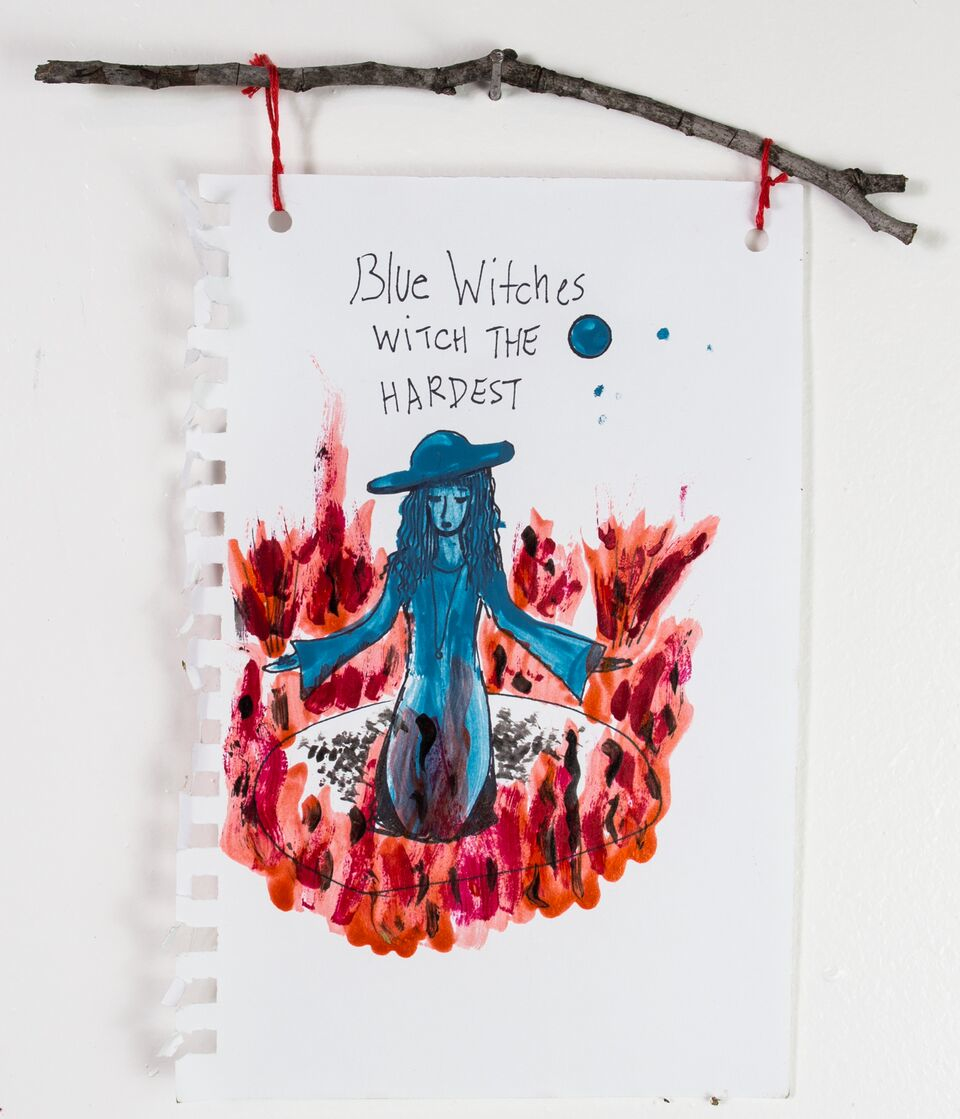 Blue Witches
WITCH THE
HARDEST